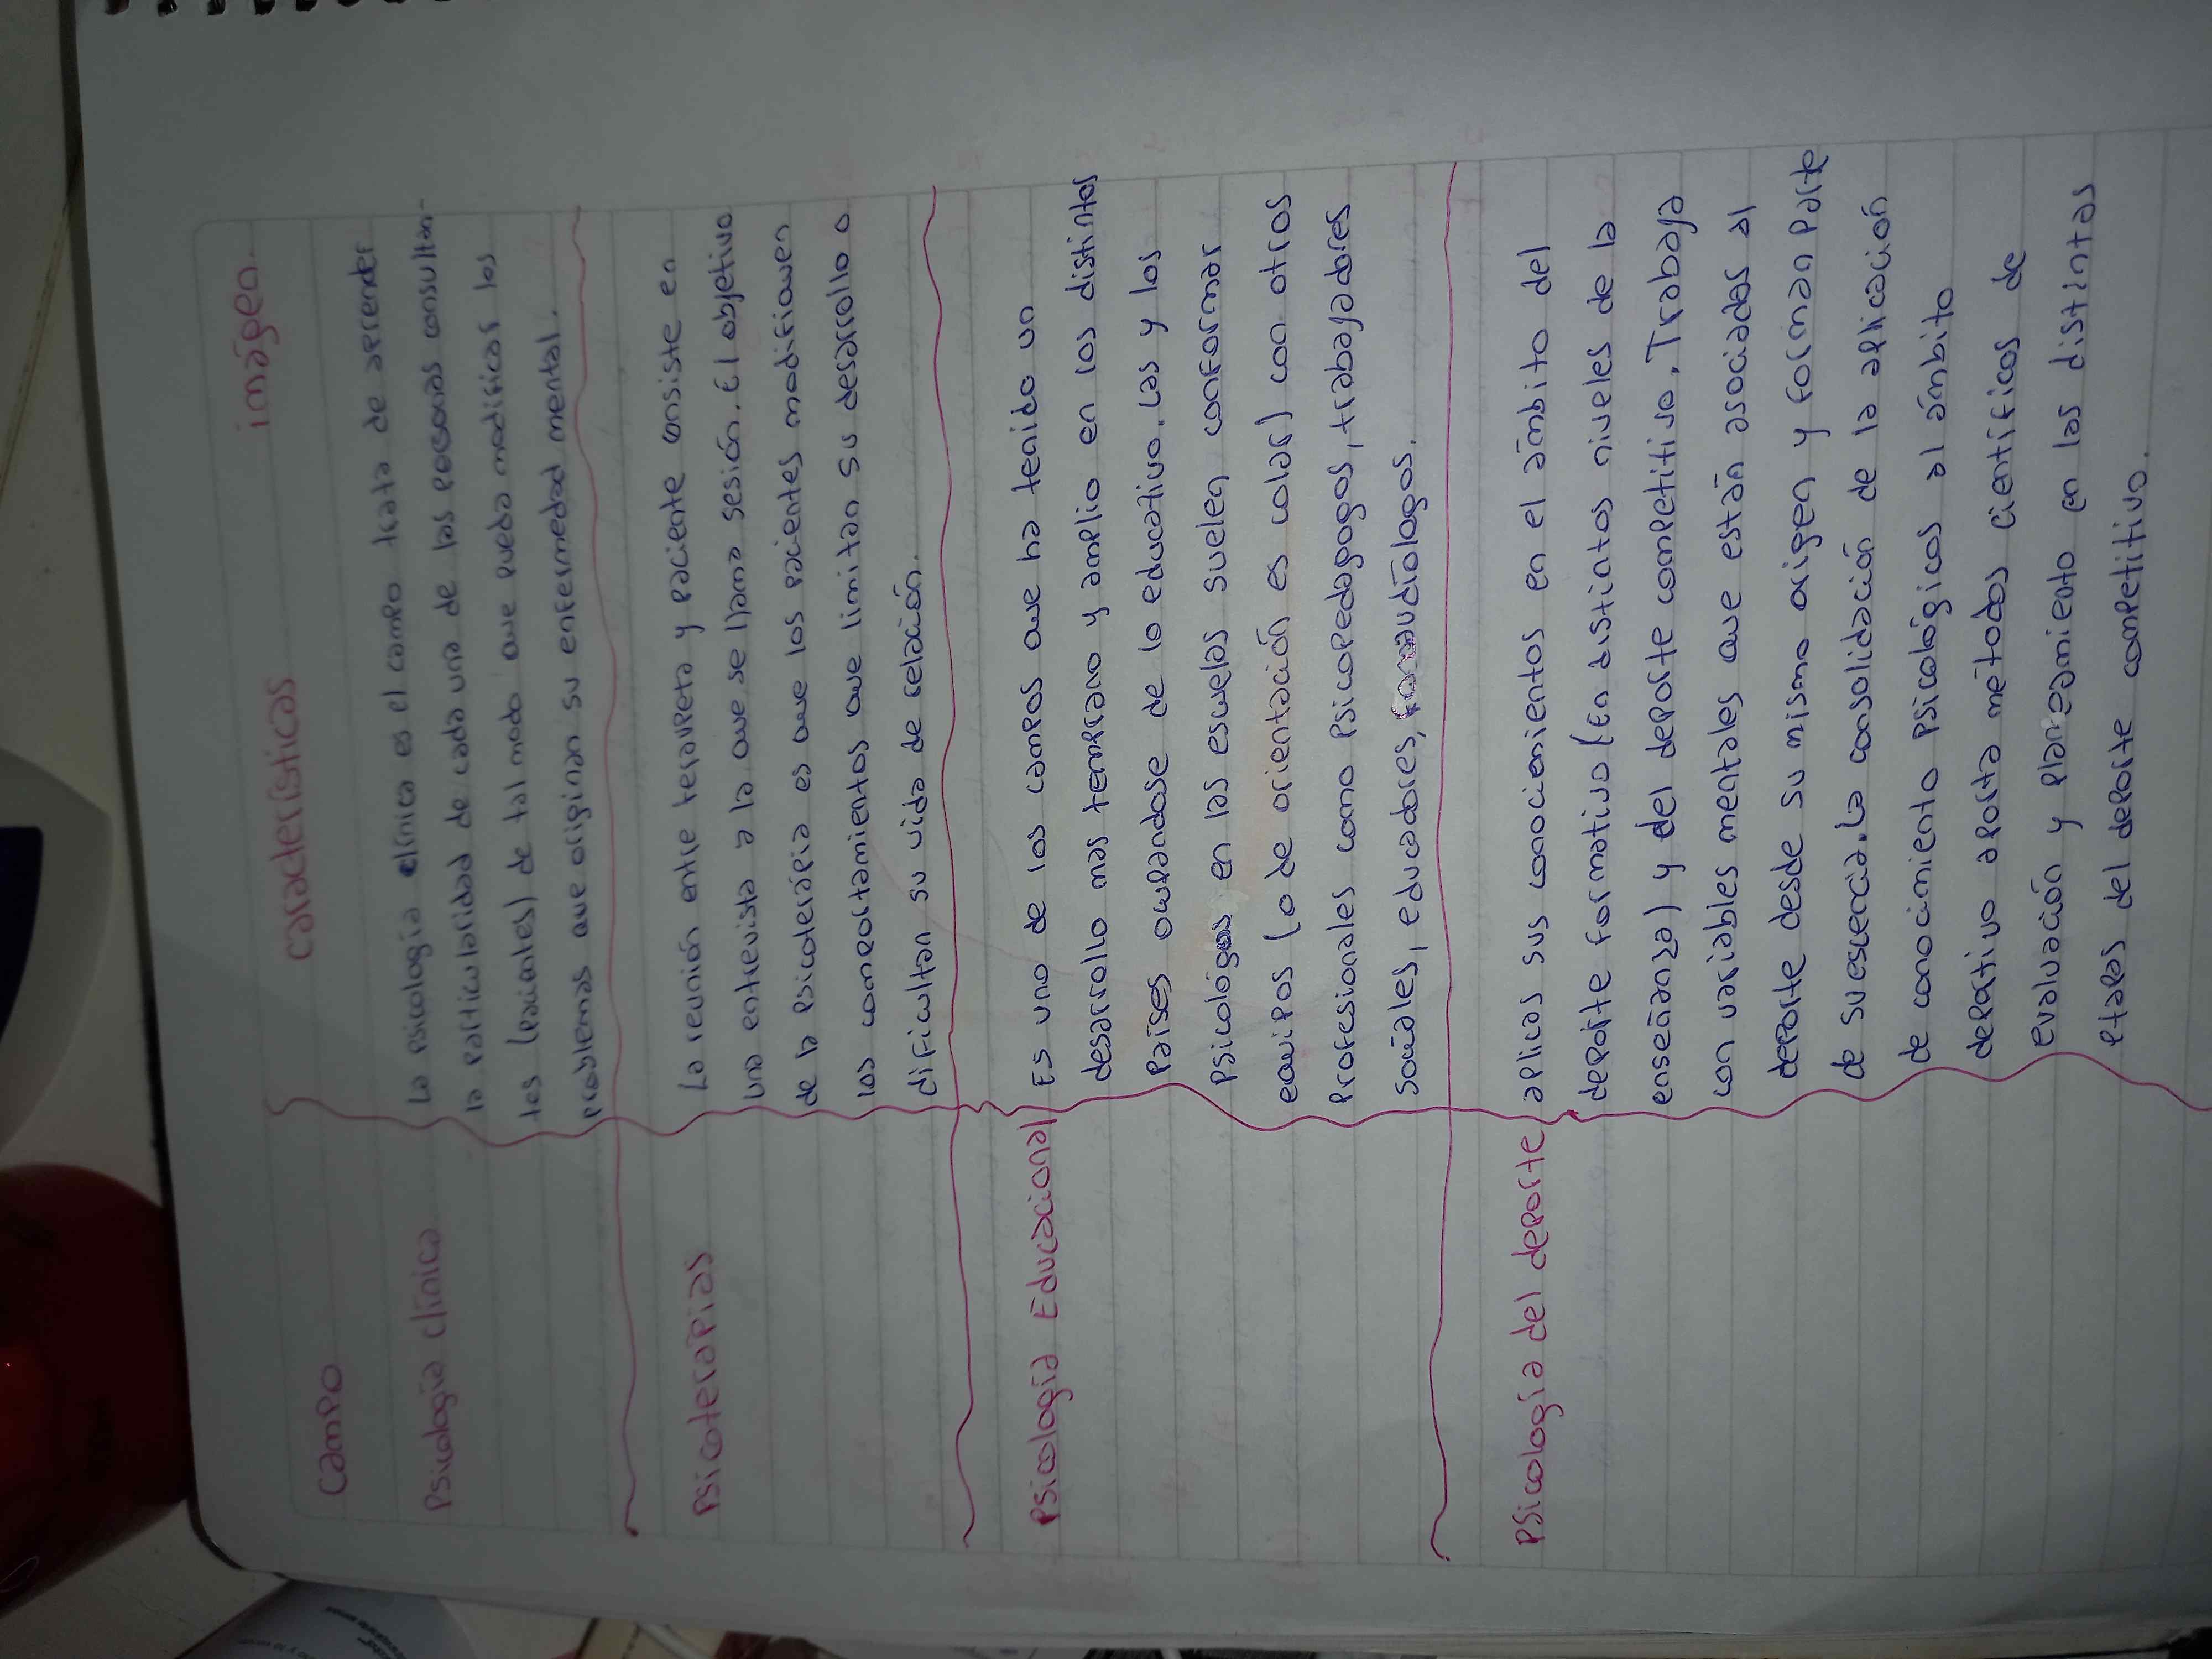 Campo
características
imágen.
Psicología clínica
La psicología clínica es el campo trata de aprender
la particularidad de cada una de las personas consultan-
tes (pacientes) de tal modo que pueda modificar los
problemas que originan su enfermedad mental.
Psicoterapias
La reunión entre terapueta y paciente consiste en
una entrevista a la que se llama sesión. El objetivo
de la psicoterápia es que los pacientes modifiquen
los comportamientos que limitan su desarrollo o
dificultan su vida de relación.
Psicología Educacional
Es uno de los campos que ha tenido un
desarrollo mas temprano y amplio en los distintos
Países ocupandose de lo educativo. Las y los
Psicológos en las escuelas suelen conformar
equipos (o de orientación es colar) con otros
Profesionales como Psicopedagogos, trabajadores
sociales, educadores, fonoaudíologos.
Psicología del deporte
aplicas sus conocimientos en el ámbito del
deporte formativo (En distintos niveles de la
enseñanza) y del deporte competitivo. Trabaja
con variables mentales que están asociados al
deporte desde su mismo origen y forman Parte
de su escencia. La consolidación de la aplicación
de conocimiento psicológicos al ámbito
depórtivo aporta métodos científicos de
evaluación y planeamiento en las distintas
etapas del deporte competitivo.